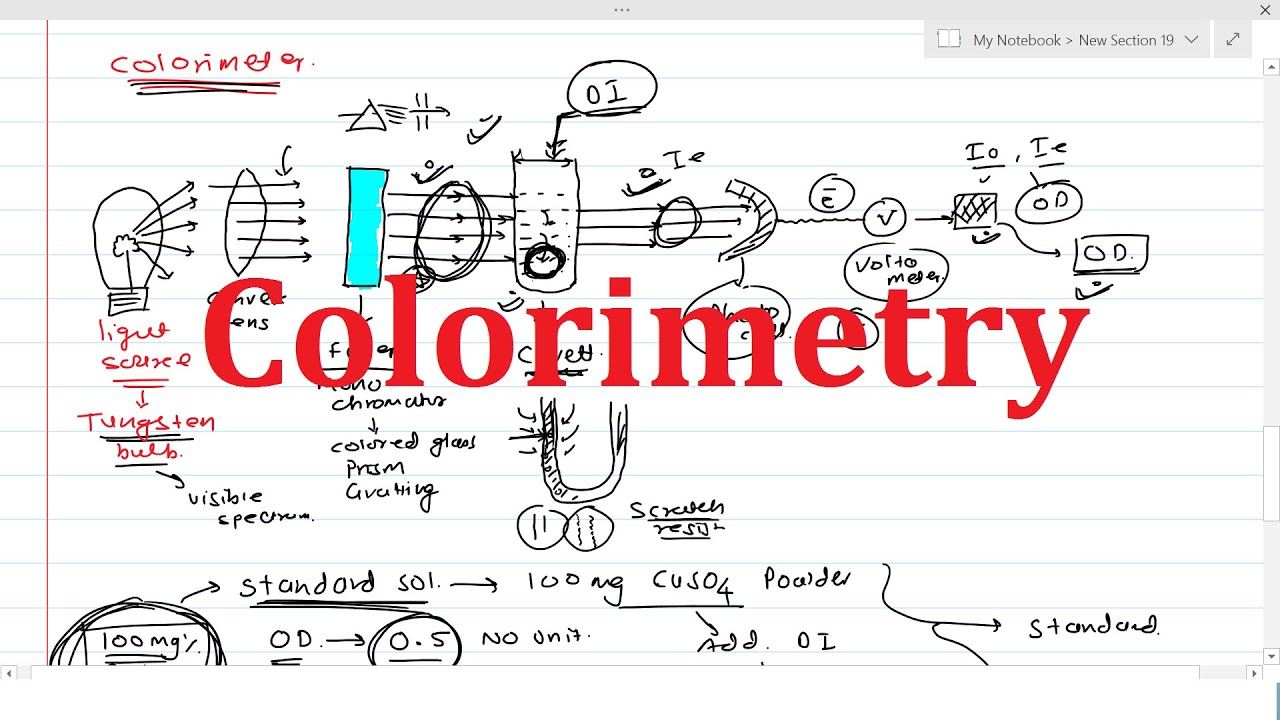 My Notebook > New Section 19
Colorimeter.
DI
Io, Ie
Ie
OD
OD.
V
Volto
meter.
light
source
Tungsten
bulb.
visible
spectrum.
Colorimetry
chromator
colored glass
Prism
Grating
Scratch
standard sol. → 100 mg CuSO4 Powder
100 mg% OD. → 0.5 NO Unit.
Add. DI
Standard.